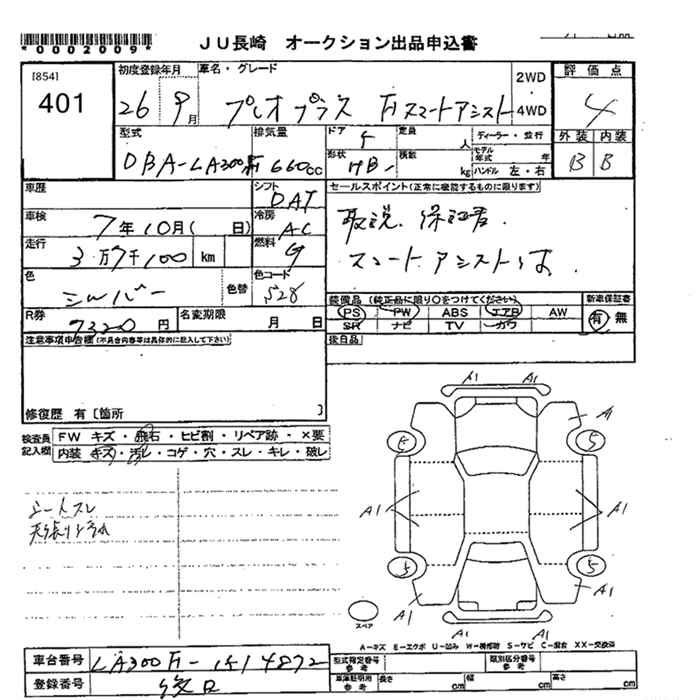 *0002009*
JU長崎 オークション出品申込書
[854]
401
初度登録年月
車名・グレード
2WD
4WD
評価点
26 9月
プレオプラス Fスマートアシスト
4
型式
排気量
ドア
定員
人
ディーラー・並行
外装 内装
DBA-LA300F 660cc
形状
積数
kg
モデル年式
年
ハンドル 左・右
B B
車歴
シフト
DAT
セールスポイント(正常に機能するものに限ります)
車検
7年10月( 日)
冷房
AC
取説、保証書、
走行
3万7千100 km
燃料
G
スマートアシスト
色
シルバー
色替
色コード
S28
R券
7320円
名変期限
月 日
装備品(純正品に限り○をつけてください)
新車保証書
PS PW ABS エアB AW
有 無
SR ナビ TV カワ
注意事項申告欄(不具合内容等は具体的に記入して下さい)
後日品
修復歴 有〔箇所 〕
検査員記入欄
FW キズ・飛石・ヒビ割・リペア跡・×要
内装 キズ・汚レ・コゲ・穴・スレ・キレ・破レ
A1 A1
A1
5 5
シートスレ
A1 A1
天張り汚れ
5 5
A1 A1
スペア
A1 A1
A-キズ E-エクボ U-凹み W-補修跡 S-サビ C-腐食 XX-交換済
車台番号
LA300F-1414872
型式指定番号 参考
類別区分番号 参考
登録番号
後日
車庫証明用 参考
長さ cm
幅 cm
高さ cm